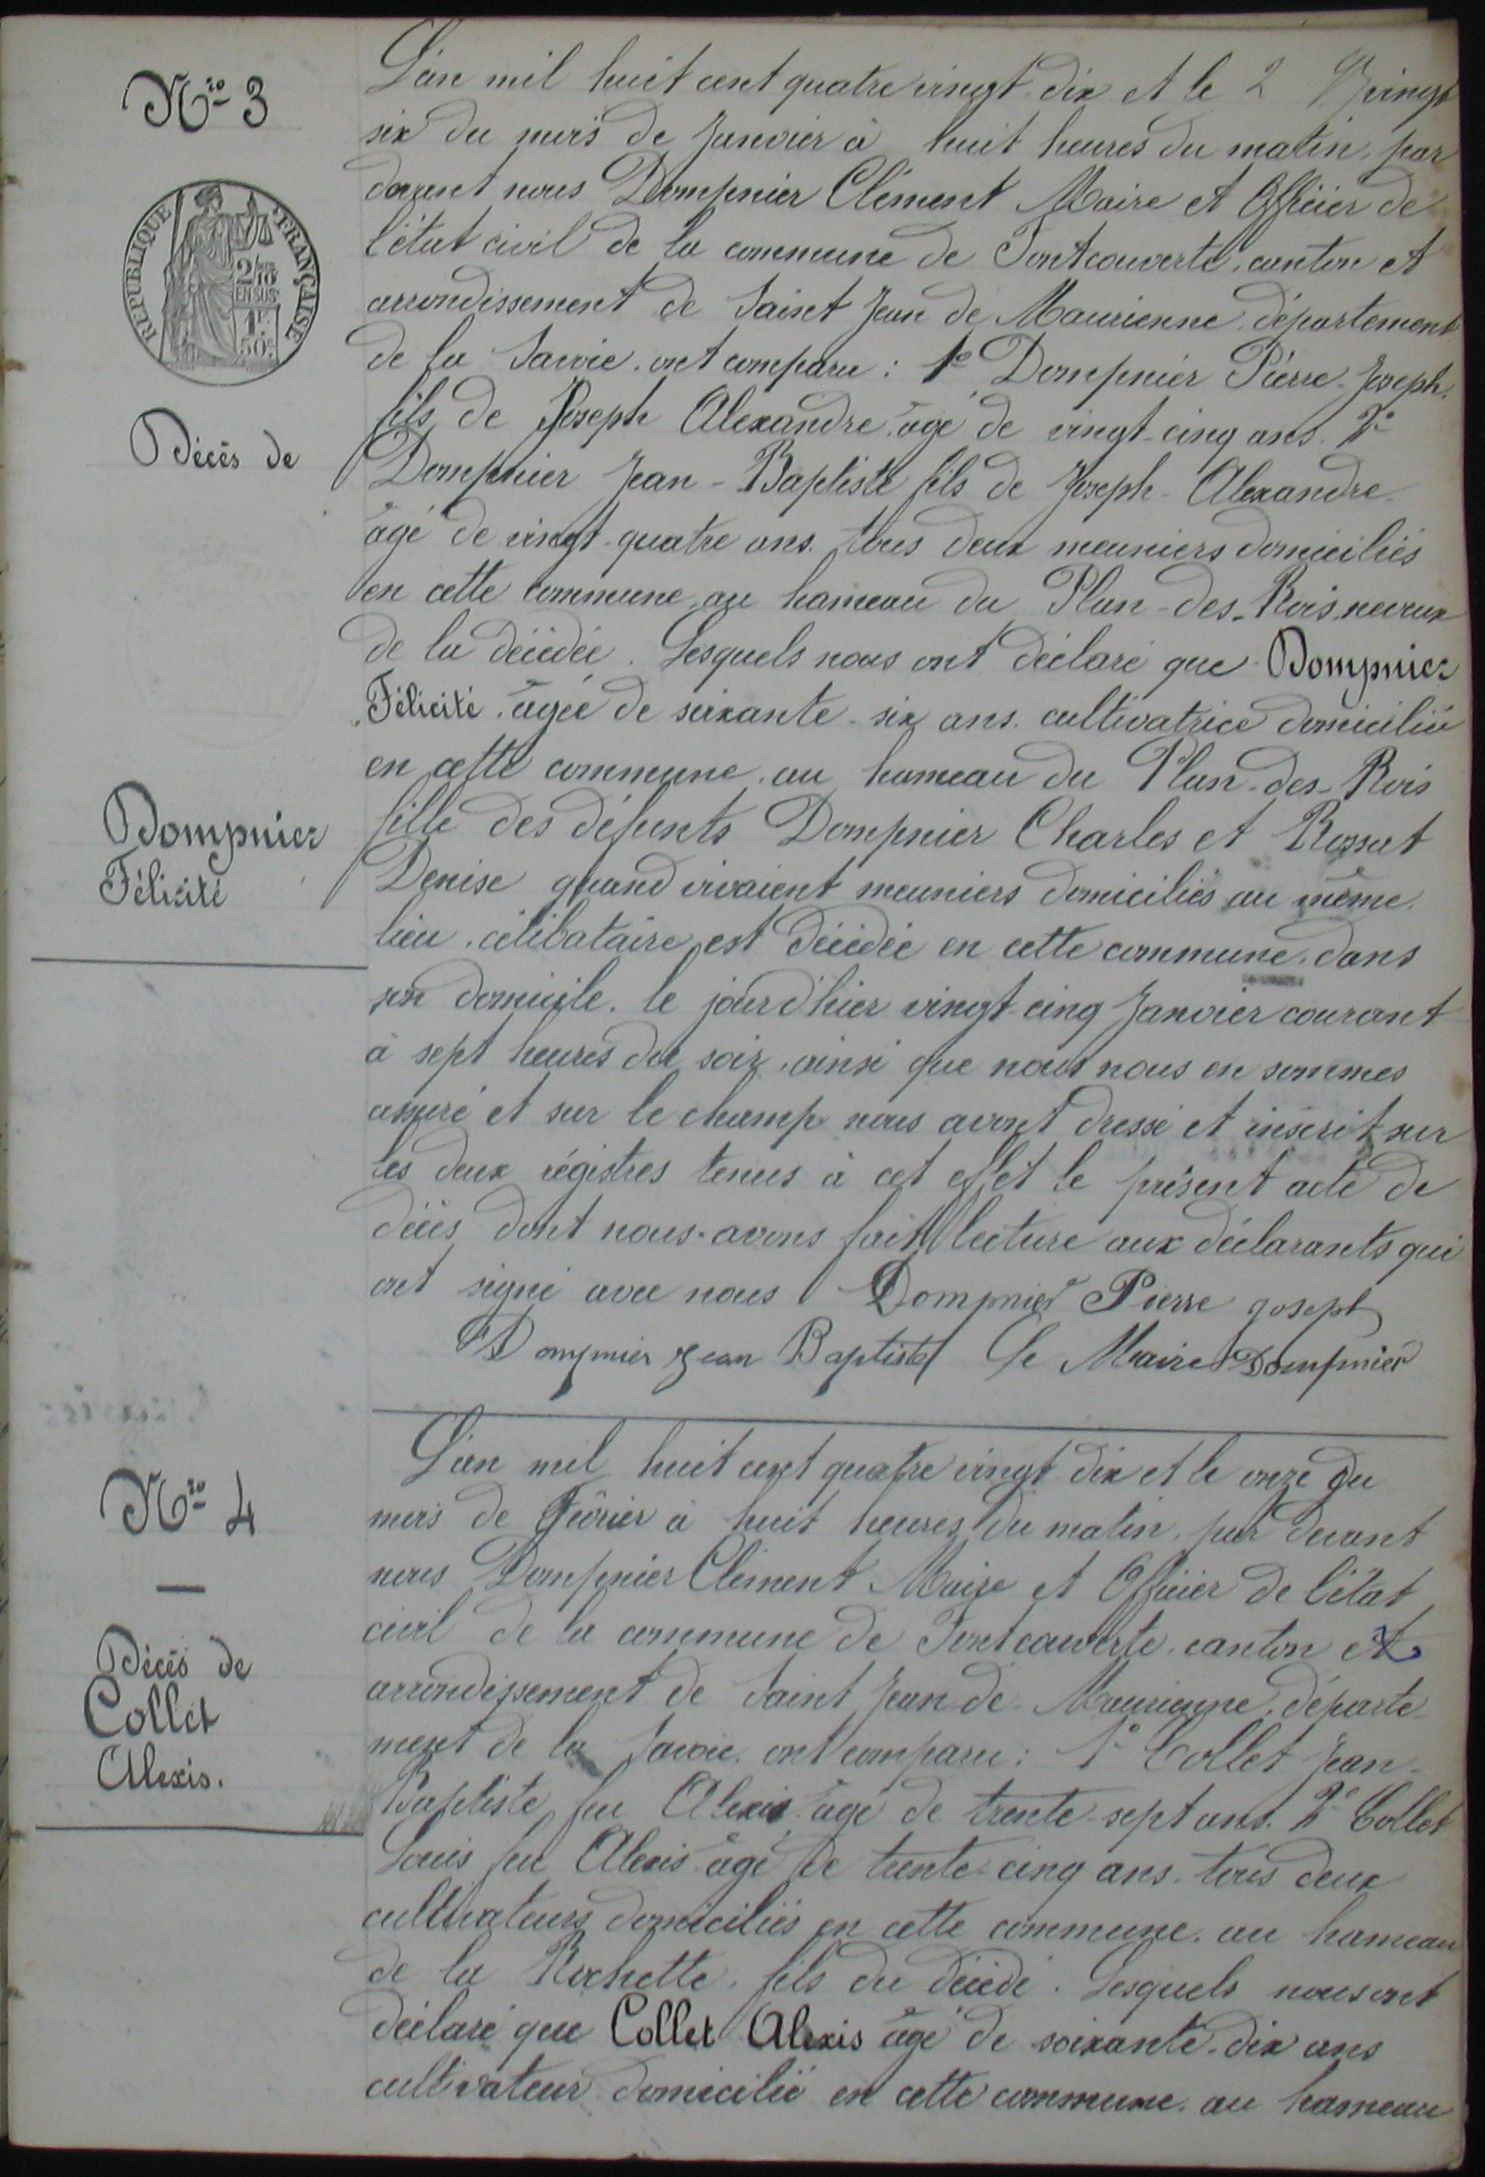 Nro 3
REPUBLIQUE FRANÇAISE
2/10
EN SUS
1F
50c
Décès de
Dompnier
Félicité
L'an mil huit cent quatre vingt dix et le 2 vingt
six du mois de Janvier à huit heures du matin, par
devant nous Dompnier Clément Maire et Officier de
l'état civil de la commune de Fontcouverte, canton et
arrondissement de Saint Jean de Maurienne, département
de la Savoie, ont comparu : 1o Dompnier Pierre-Joseph,
fils de Joseph Alexandre, âgé de vingt-cinq ans. 2o
Dompnier Jean-Baptiste fils de Joseph-Alexandre
âgé de vingt-quatre ans. tous deux meuniers domiciliés
en cette commune, au hameau du Plan-des-Rois, neveux
de la décédée. Lesquels nous ont déclaré que Dompnier
Félicité, âgée de soixante-six ans, cultivatrice domiciliée
en cette commune, au hameau du Plan-des-Rois
fille des défunts Dompnier Charles et Rossat
Denise quand vivaient meuniers domiciliés au même
lieu, célibataire, est décédée en cette commune, dans
son domicile, le jour d'hier vingt-cinq Janvier courant
à sept heures du soir, ainsi que nous nous en sommes
assuré et sur le champ nous avont dressé et inscrit sur
les deux régistres tenus à cet effet le présent acte de
décès dont nous avons fait lecture aux déclarants qui
ont signé avec nous Dompnier Pierre joseph
Dompnier Jean Baptiste Le Maire Dompnier
Nro 4
Décès de
Collet
Alexis.
L'an mil huit cent quatre vingt dix et le onze du
mois de Février à huit heures du matin, par devant
nous Dompnier Clément Maire et Officier de l'état
civil de la commune de Fontcouverte, canton et
arrondissement de Saint Jean-de-Maurienne, départe-
ment de la Savoie, ont comparu : 1o Collet Jean-
Baptiste feu Alexis âgé de trente-sept ans. 2o Collet
Louis feu Alexis âgé de trente-cinq ans. tous deux
cultivateurs domiciliés en cette commune, au hameau
de la Rochette, fils du décédé. Lesquels nous ont
déclaré que Collet Alexis âgé de soixante-dix ans
cultivateur domicilié en cette commune, au hameau